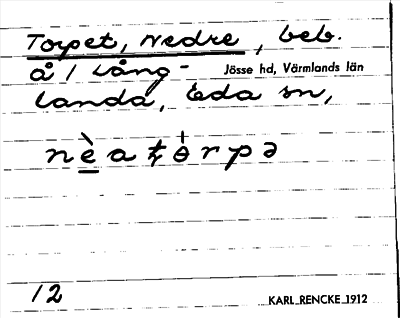 Torpet, Nedre, beb.
å / Lång- Jösse hd, Värmlands län
landa, Eda sn,
nèatɵ̇rpə
12 KARL RENCKE 1912